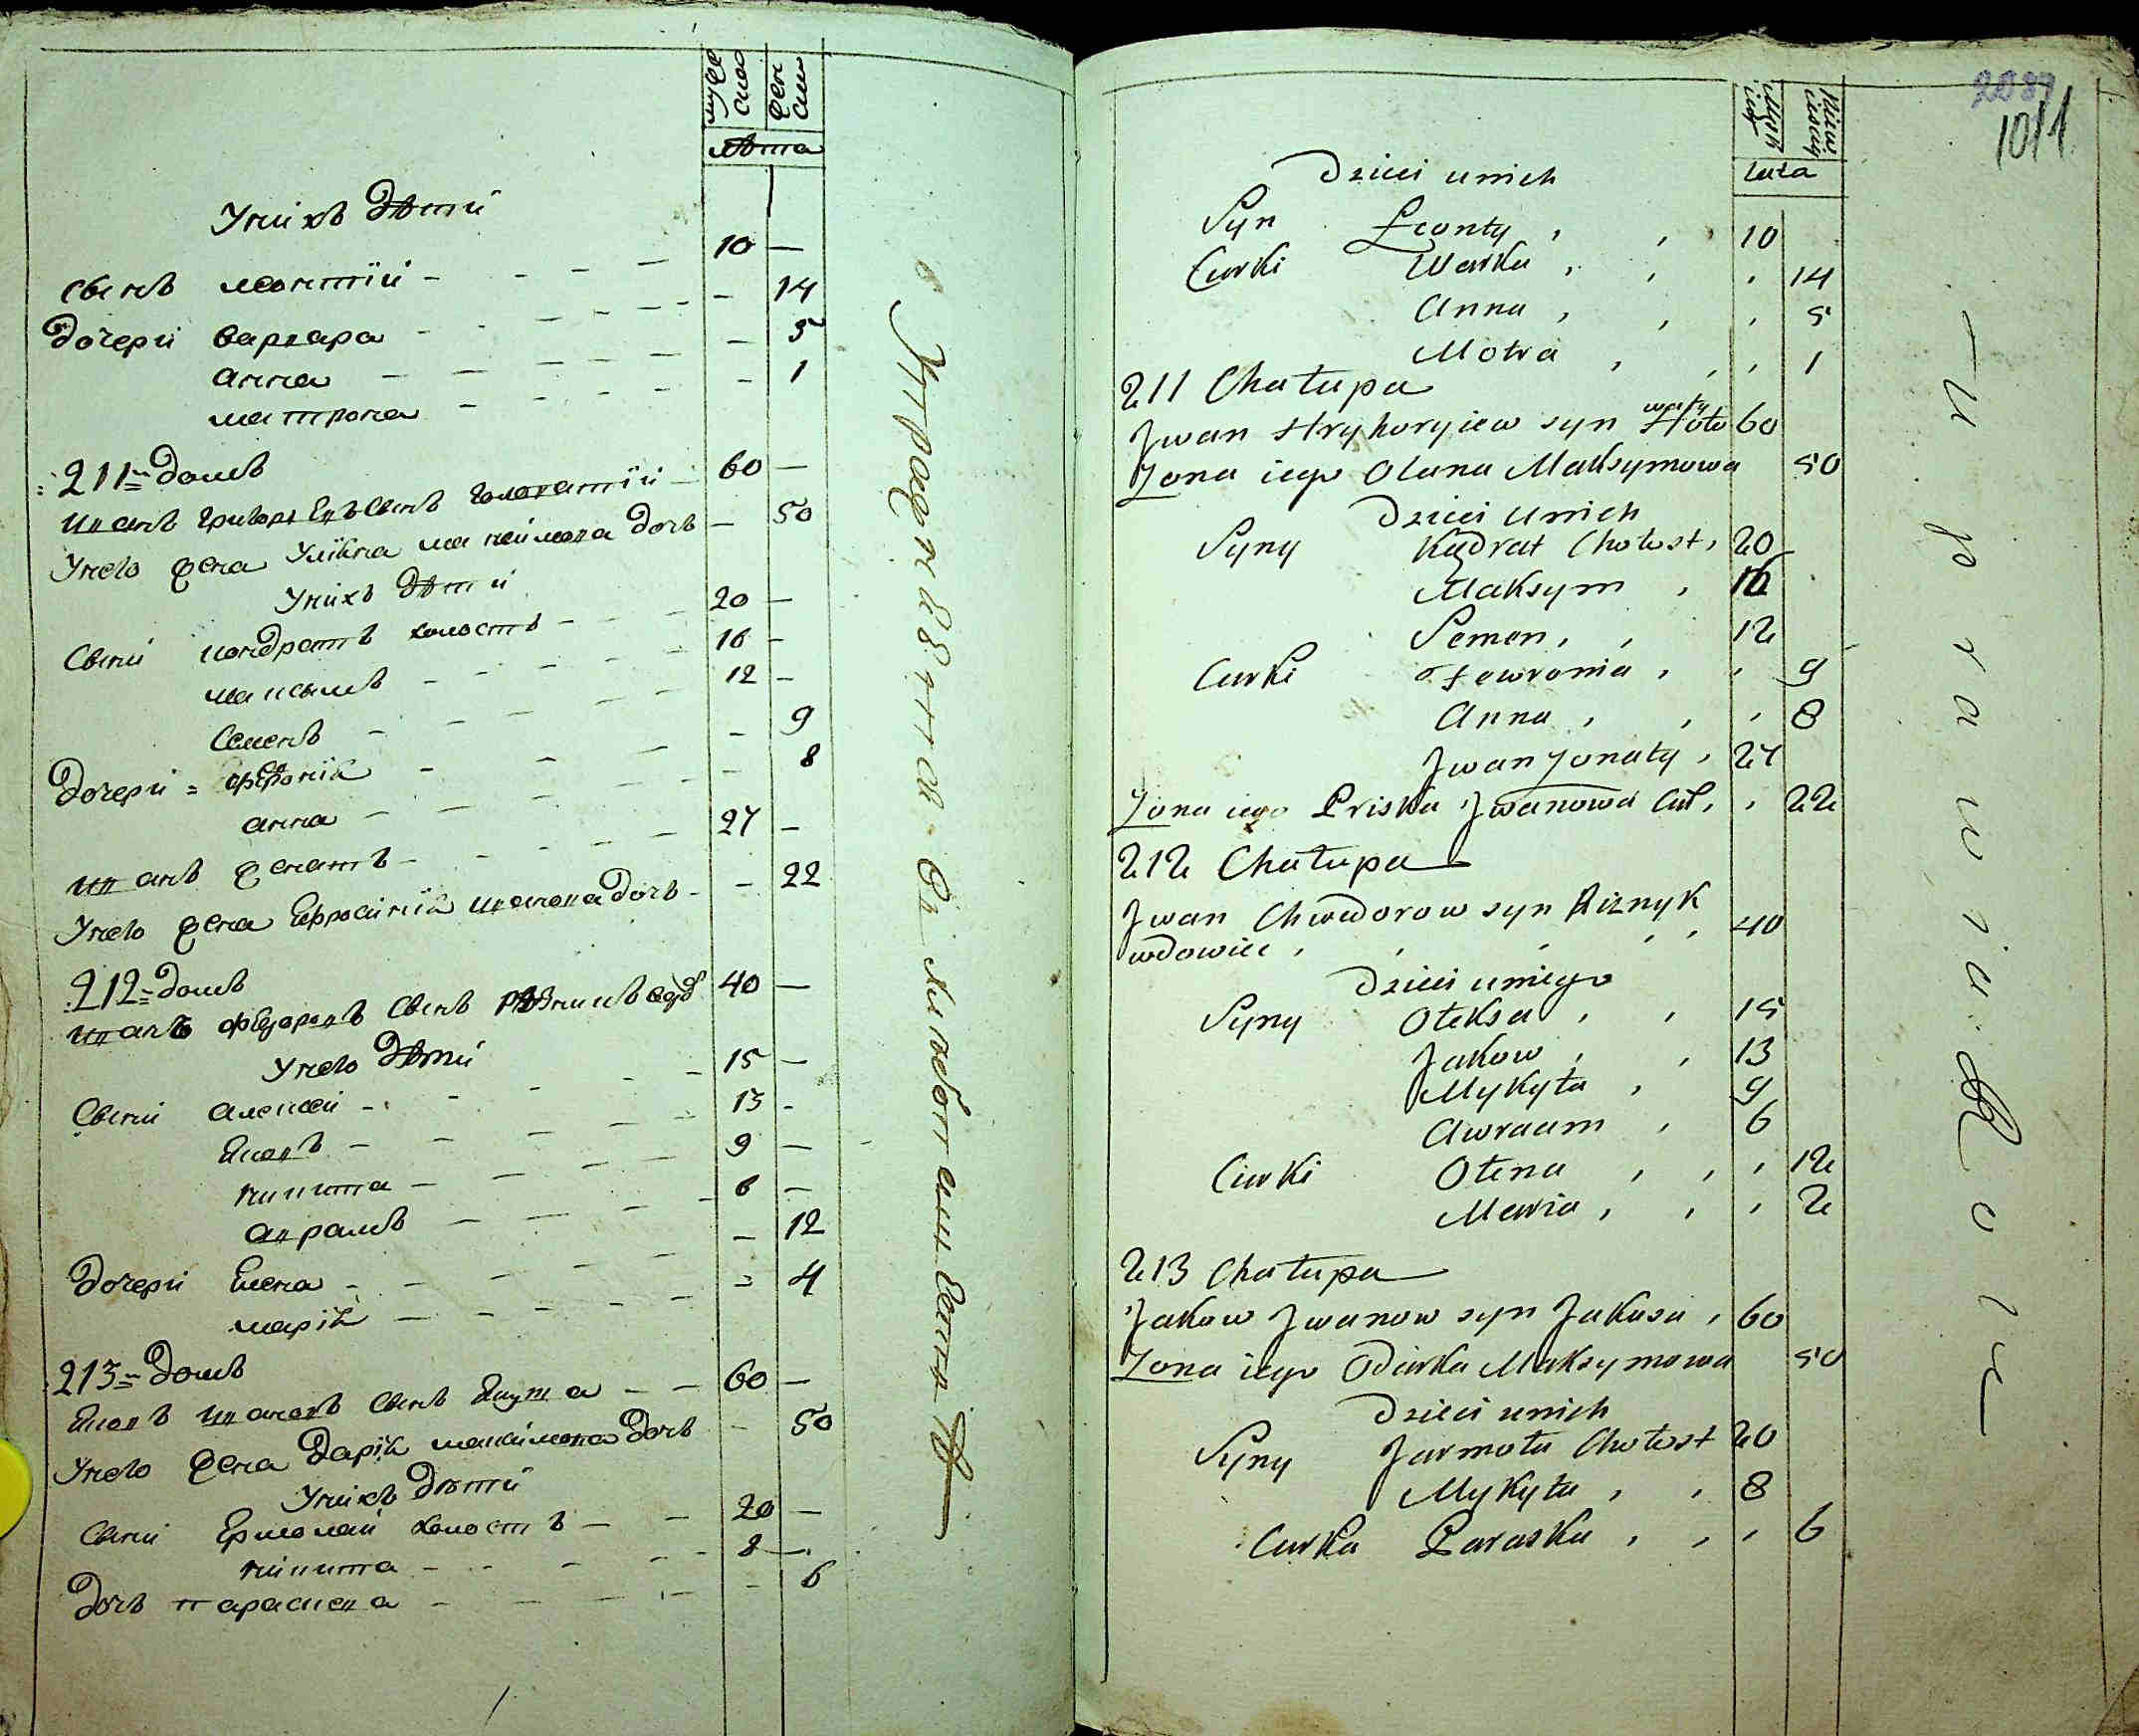 мужеска
женска
лѣта
У нихъ дѣти
Сынъ леонтій 10
Дочери варвара 14
анна 5
матрона 1
211 домъ
иванъ григорьевъ сынъ головатій 60
У него жена Уліяна максимова дочь 50
У нихъ дѣти
Сыни кондратъ холостъ 20
максымъ 16
Семенъ 12
Дочери февроніа 9
анна 8
иванъ женатъ 27
У него жена Ефросинія иванова дочь 22
212 домъ
иванъ федоровъ сынъ рѣзникъ вдо 40
У него дѣти
Сыни алексей 15
Яковъ 13
никита 9
аврамъ 6
Дочери Елена 12
марія 4
213 домъ
Яковъ ивановъ сынъ 60
У него жена Дарія максимова дочь 50
У нихъ дѣти
Сыни Ермолай холостъ 20
никита 8
Дочь параскева 6
Męzk
iey
lata
2089
1011
Dzieci u nich
Syn Leonty 10
Curki Warka 14
Anna 5
Motra 1
211 Chałupa
Jwan Hryhoryiew syn Hoło 60
waty
Zona iego Olana Maksymowa 50
Dzieci u nich
Syny Kądrat Chołost 20
Maksym 16
Semen 12
Curki Fewronia 9
Anna 8
Jwan Zonaty 27
Zona iego Priska Jwanowa Cur 22
212 Chałupa
Jwan Chwedorow syn Riznyk
wdowiec 40
Dzieci u niego
Syny Oleksa 15
Jakow 13
Mykyta 9
Awraam 6
Curki Olena 12
Maria 2
213 Chałupa
Jakow Jwanow syn Jakusa 60
Zona iego Odarka Maksymowa 50
Dzieci u nich
Syny Jarmoła Chołost 20
Mykyta 8
Curka Paraska 6